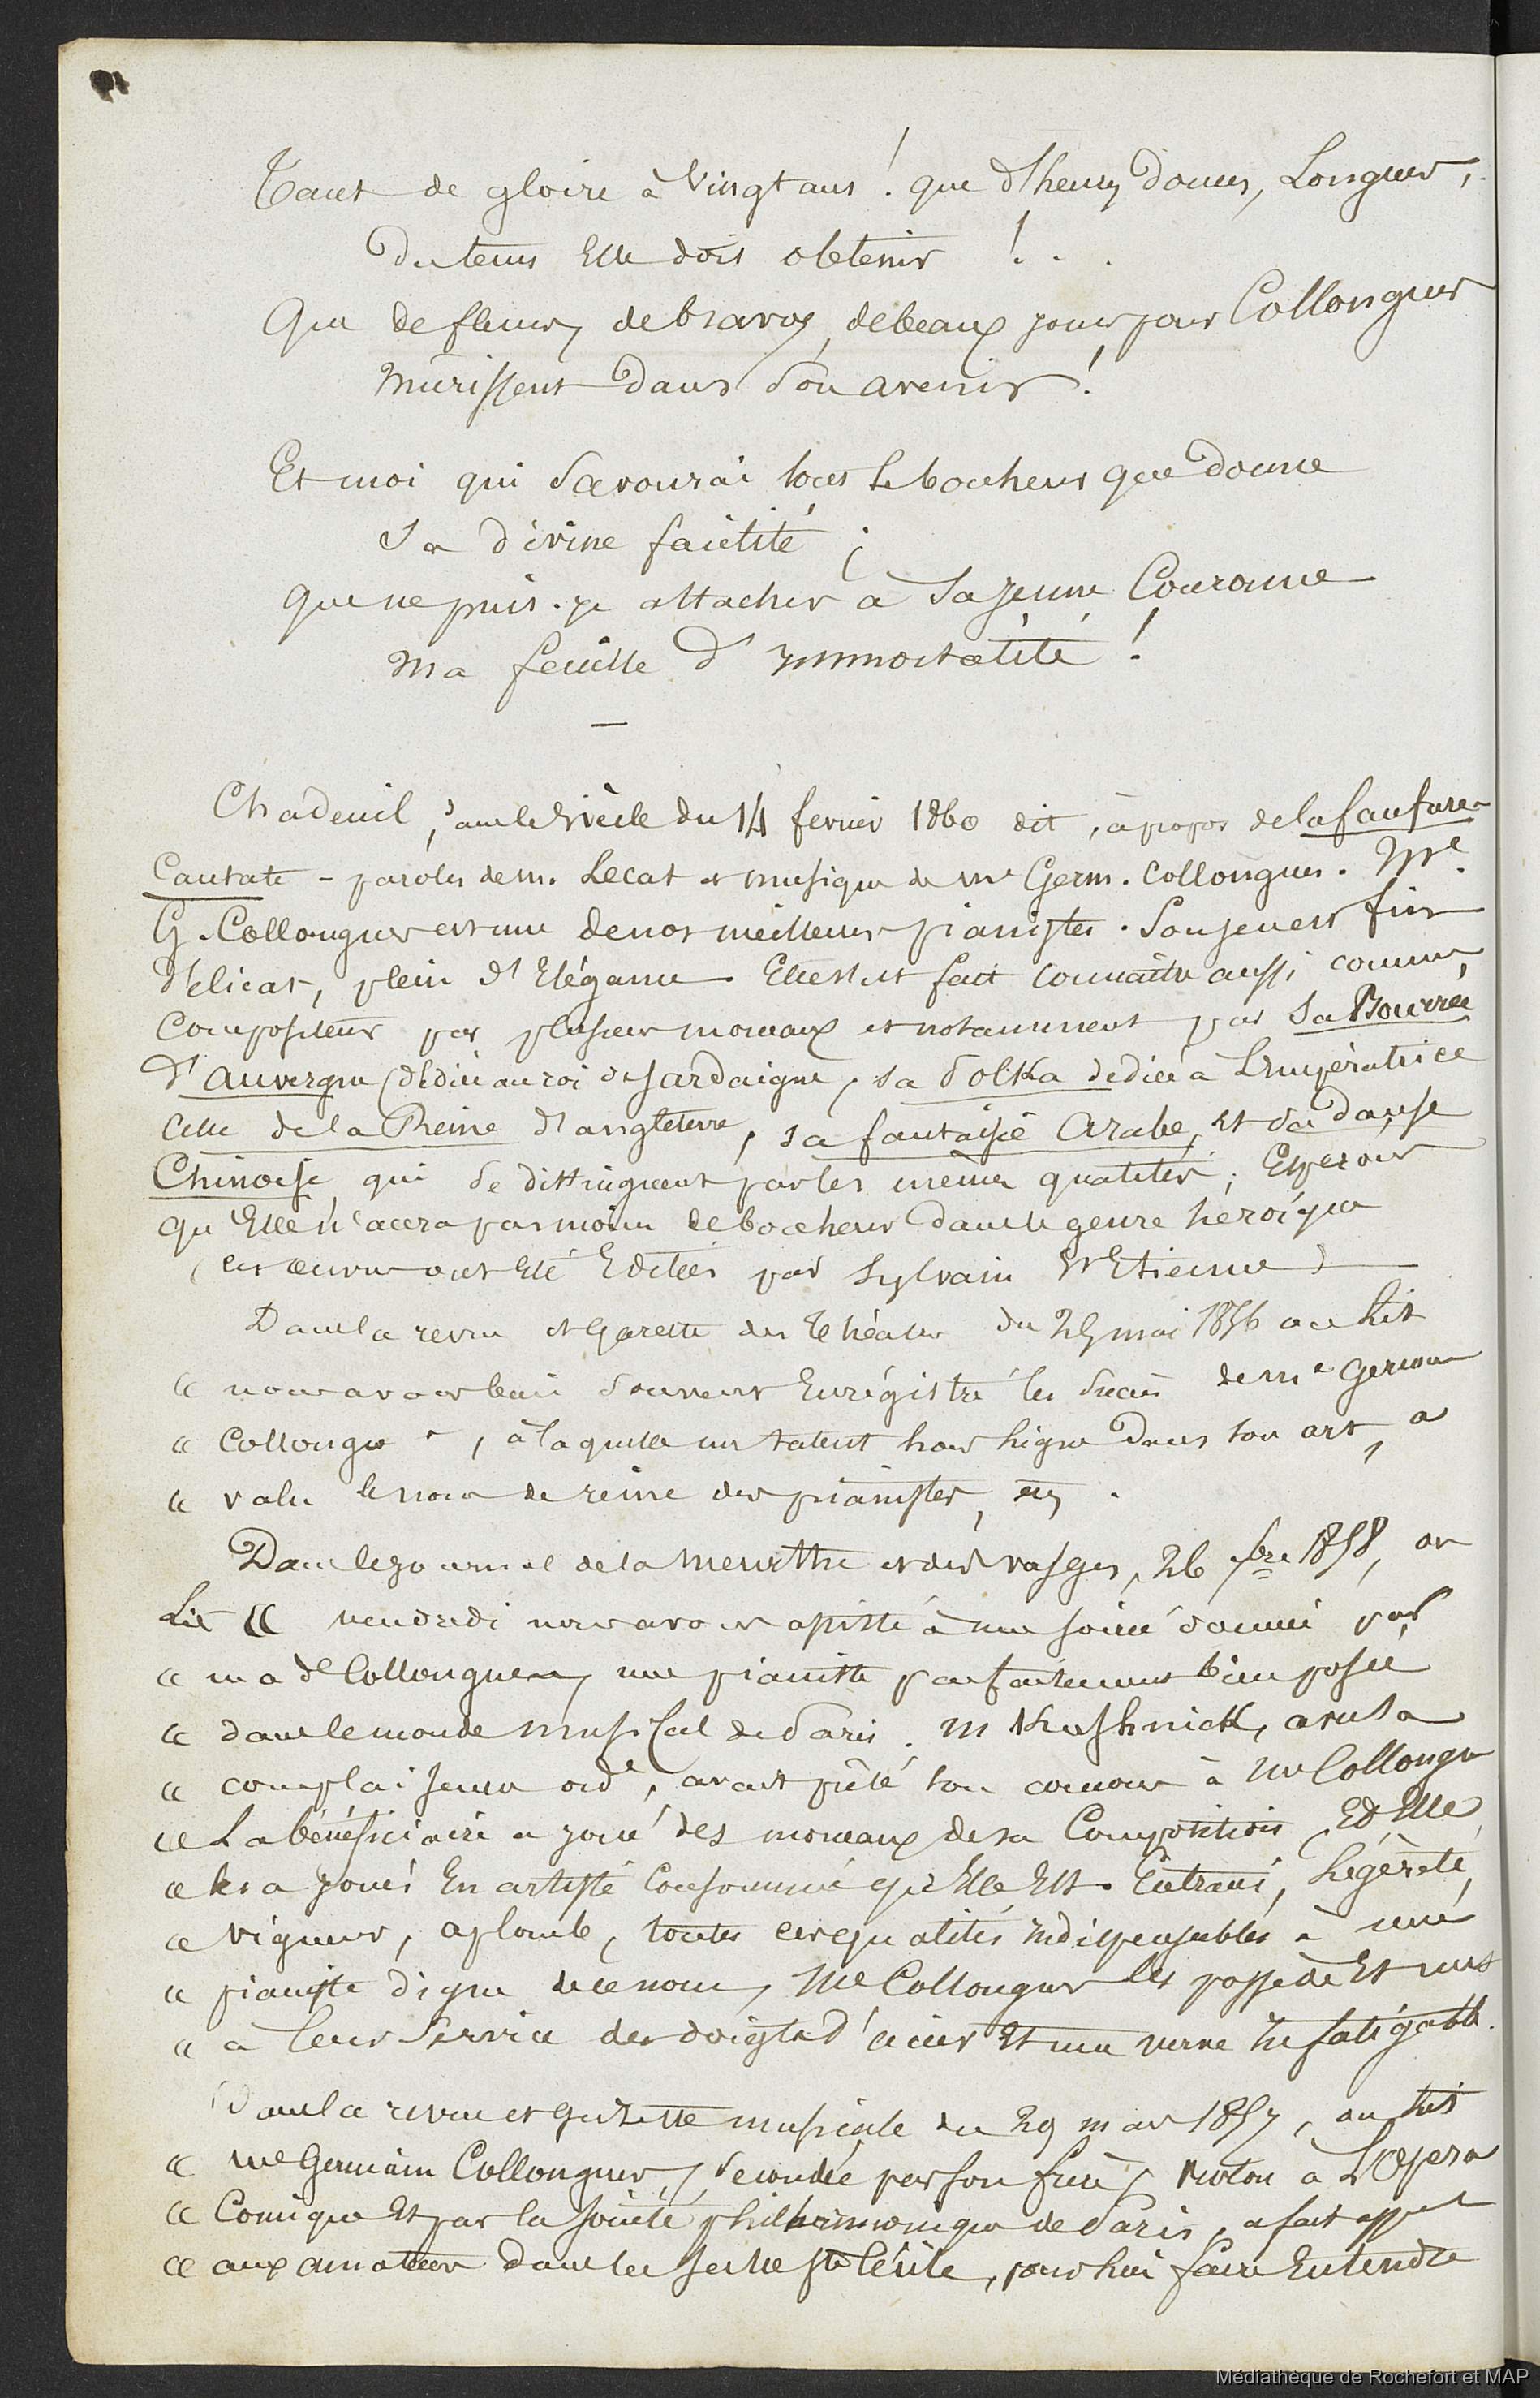 Tant de gloire à vingt ans ! que d'heures douces, Longues,
Du tems Elle doit obtenir ! . . .
Que de fleurs, de bravos, de beaux jours pour Collongues
Mûrissent dans son avenir !
Et moi qui savourai tout le bonheur que donne
Sa divine facilité ;
Que ne puis-je attacher à sa jeune Couronne
Ma feuille d'immortalité !
—
Chadeuil, dans le siècle du 14 fevrier 1860 dit, à propos de la fanfare-
Cantate - paroles de m. Lecat et musique de me Germ. Collongues. Me
G. Collongues est une de nos meilleures pianistes. Son jeu est fin
délicat, plein d'Elégance. Elle s'est fait connaître aussi comme
Compositeur par plusieurs morceaux et notamment par sa Bourrée
d'auvergne (dédiée au roi de Sardaigne, sa Polka dediée à L'impératrice
Celle de la Reine d'angleterre, sa fantaisie Arabe, et sa danse
Chinoise qui se distinguent par les mêmes qualités. Esperons
qu'Elle n'aura pas moins de bonheur dans le genre héroïque
(ces œuvres ont Eté Editées par Sylvain St Etienne)
Dans la revue et Gazette des théâtres du 29 mai 1856 on lit
« nous avons bien souvent Enrégistré les succès de me Germaine
« Collongues, à laquelle un talent hors ligne dans son art, a
« valu le nom de reine des pianistes,
Dans le journal de la Meurthe et des vosges, 26 1858, on
Lit « vendredi nous avons assisté à une soirée donnée par
« made Collongues, une pianiste parfaitement bien posée
« dans le monde musical de Paris. M avec sa
« complaisance ordre, avait prêté son concours à me Collongues
« La bénéficiaire a joué des morceaux de sa Composition Et Elle
« les a joués En artiste Consommée qu'Elle Est. Entrain, Légèreté,
« vigueur, aplomb, toutes ces qualités indispensables à une
« pianiste digne de ce nom, Me Collongues les possède Et met
« à leur service des doigts d'acier Et une verve infatigable.
Dans la revue et gazette musicale du 29 mars 1857, on lit
« Me Germain Collongues, secondée par son frère, violon à L'Opera
« Comique Et par la société philharmonique de Paris, a fait appel
« aux amateurs dans la salle Ste Cécile, pour lui faire Entendre
Médiathèque de Rochefort et MAP